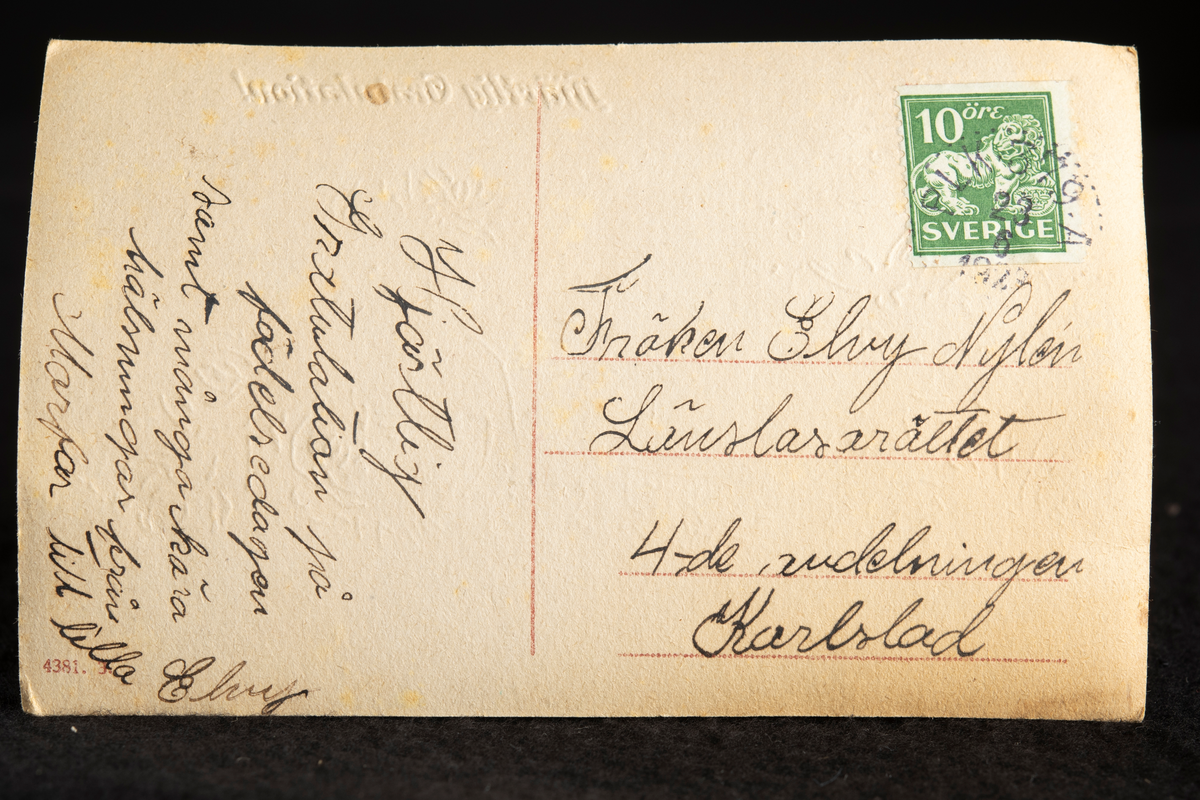 Hjärtlig Gratulation!
10 öre
SVERIGE
23
6
Fröken Elvy Nylén
Länslasarättet
4-de avdelningen
Karlstad
Hjärtlig
Gratulation på
födelsedagen
samt många kära
hälsningar från
Morfar till lilla
Elvy
4381.